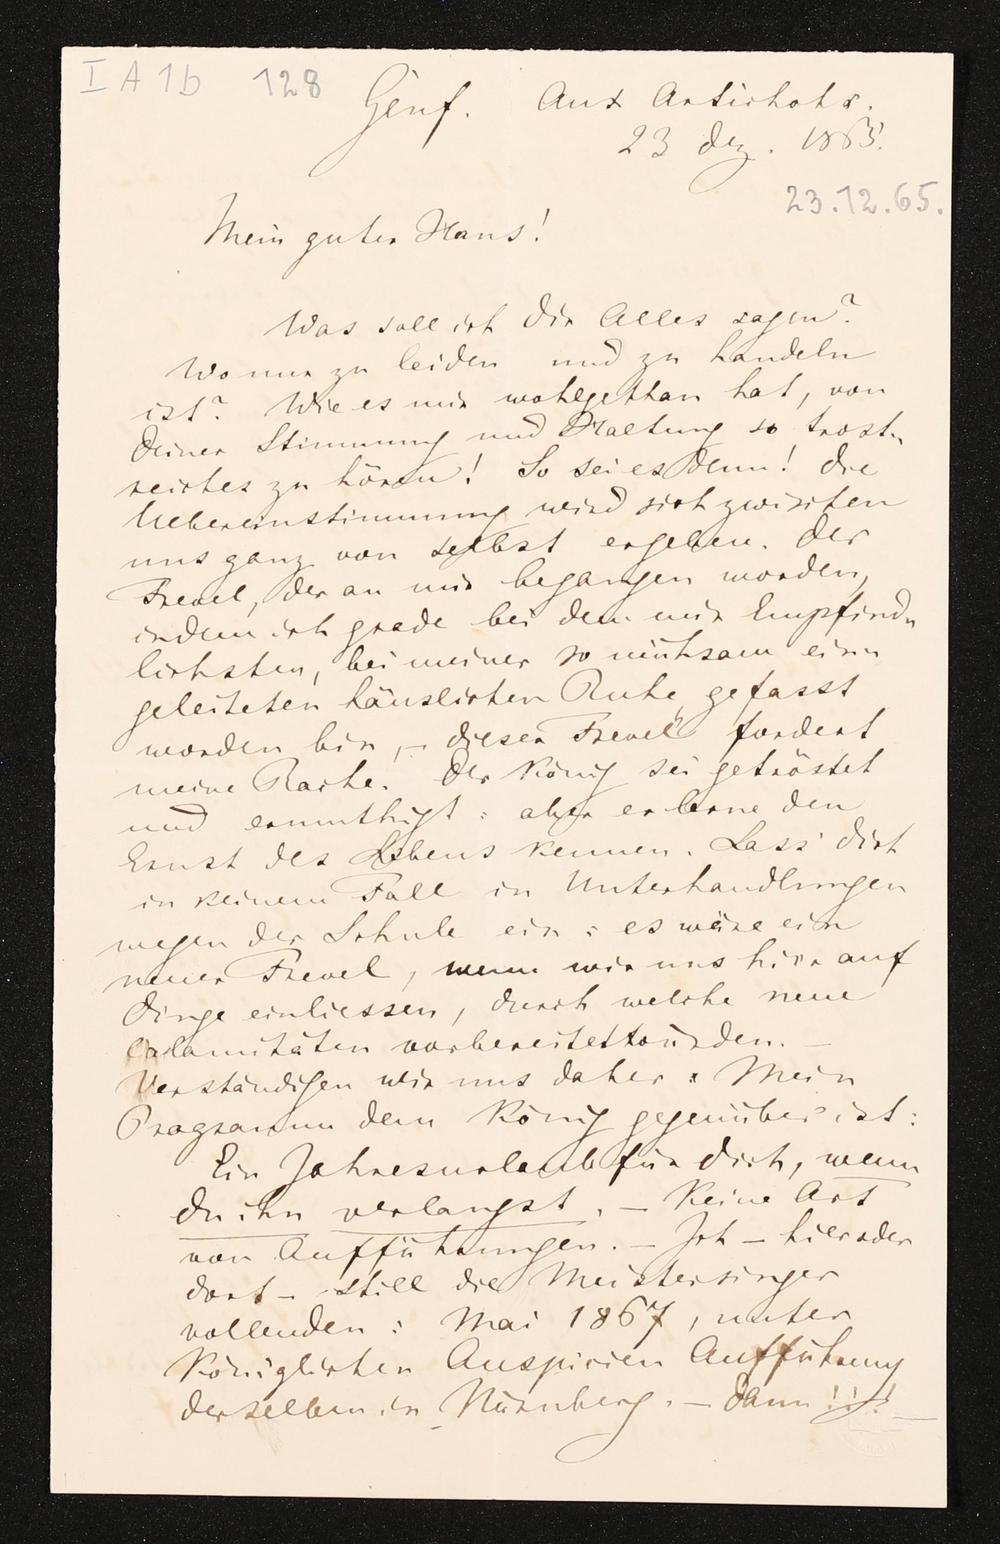 I A 1b 128
Genf. Aux Artichots.
23 Dez. 1865.
23.12.65.
Mein guter Hans!
Was soll ich Dir Alles sagen?
Wo nur zu leiden und zu handeln
ist? Wie es mir wohlgethan hat, von
Deiner Stimmung und Haltung so trost-
reiches zu hören! So sei es denn! Die
Uebereinstimmung wird sich zwischen
uns ganz von selbst ergeben. Der
Frevel, der an mir begangen worden,
indem ich grade bei dem mir Empfind-
lichsten, bei meiner so mühsam ein-
geleiteten häuslichen Ruhe, gefasst
worden bin, – dieser Frevel fordert
meine Rache. Der König sei getröstet
und ermuthigt: aber er lerne den
Ernst des Lebens kennen. Lass' Dich
in keinem Fall in Unterhandlungen
wegen der Schule ein: es wäre ein
neuer Frevel, wenn wir uns hier auf
Dinge einliessen, durch welche neue
Calamitäten vorbereitet würden. –
Verständigen wir uns daher: Mein
Programm dem König gegenüber ist:
Ein Jahresurlaub für Dich, wenn
Du ihn verlangst. – Keine Art
von Aufführungen. – Ich – hier oder
dort – still die Meistersinger
vollenden: Mai 1867, unter
Königlichen Auspicien Aufführung
derselben in Nürnberg. – Dann!!! –